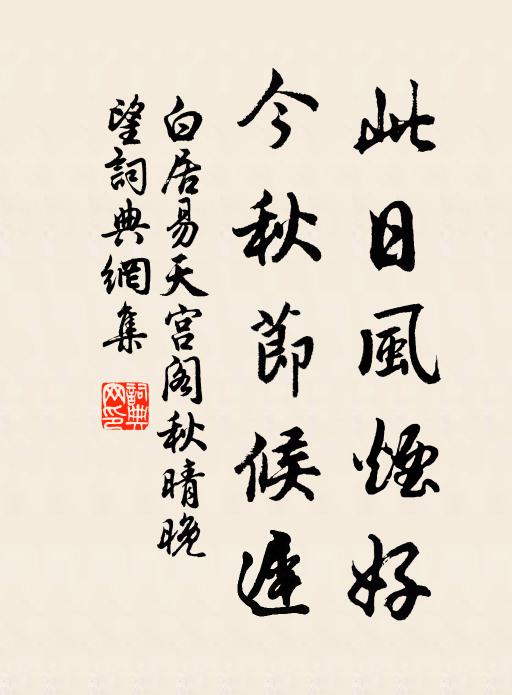 此日風煙好
今秋節候遲
白居易天宮閣秋晴晚
望詞典網集
詞典
网印